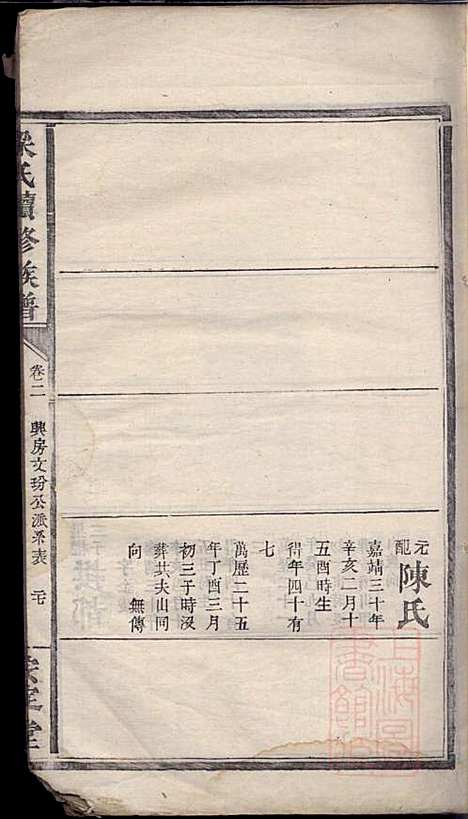 元配陳氏
嘉靖三十年
辛亥二月十
五酉時生
得年四十有
七
萬歷二十五
年丁酉三月
初三子時沒
葬共夫山同
向　無傳
氏續修族譜
卷二　興房文玢公派系表
堂